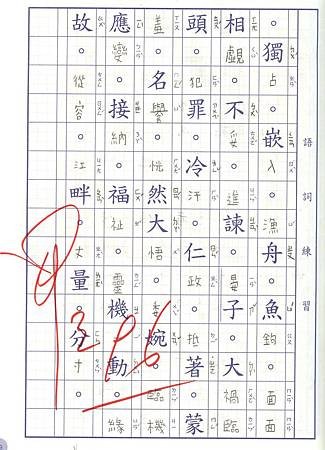 語詞練習
獨占。嵌入。漁舟。魚鉤。面面
相覷。不妥。進諫。晏子。大禍臨
頭。犯罪。冷汗。仁政。抵著。蒙
羞。名譽。恍然大悟。委婉。臨機
應變。接納。福祉。靈機一動。緣
故。從容。江畔。丈量。分寸。